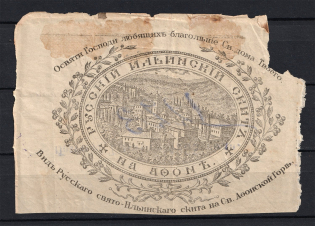 Освяти Господи любящихъ благолѣпіе Св. дома Твоего
РУССКІЙ ИЛЬИНСКІЙ СКИТЪ
НА АѲОНѢ.
Видъ Русскаго свято-Ильинскаго скита на Св. Аѳонской Горѣ.